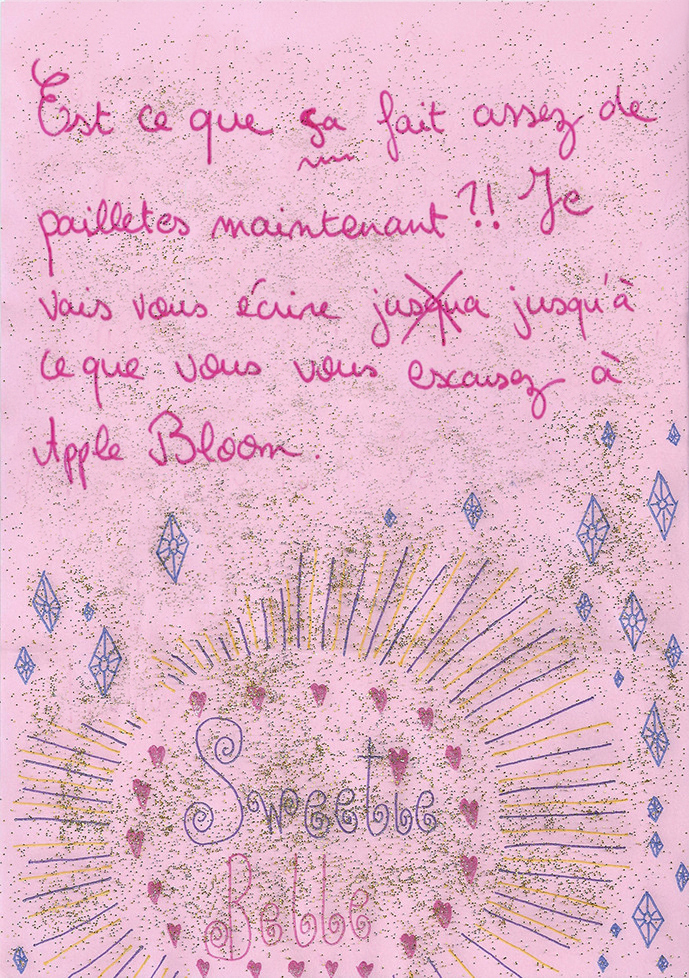 Est ce que ça fait assez de
pailletes maintenant ?! Je
vais vous écrire jusqua jusqu'à
ce que vous vous escusez à
Apple Bloom.
Sweetie
Belle